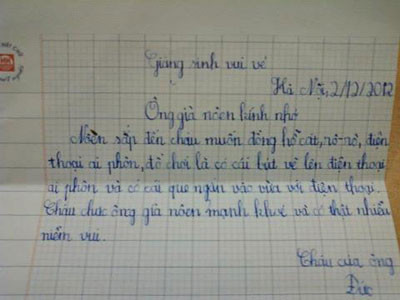 Giáng sinh vui vẻ
Hà Nội, 2/12/2012
Ông già nôen kính nhớ
Nôen sắp đến cháu muốn đồng hồ cát, rô-bô, điện
thoại ai phôn, đồ chơi là có cái bút vẽ lên điện thoại
ai phôn và có cái que ngắn vào vừa với điện thoại.
Cháu chúc ông già nôen mạnh khoẻ và có thật nhiều
niềm vui.
Cháu của ông
Đức